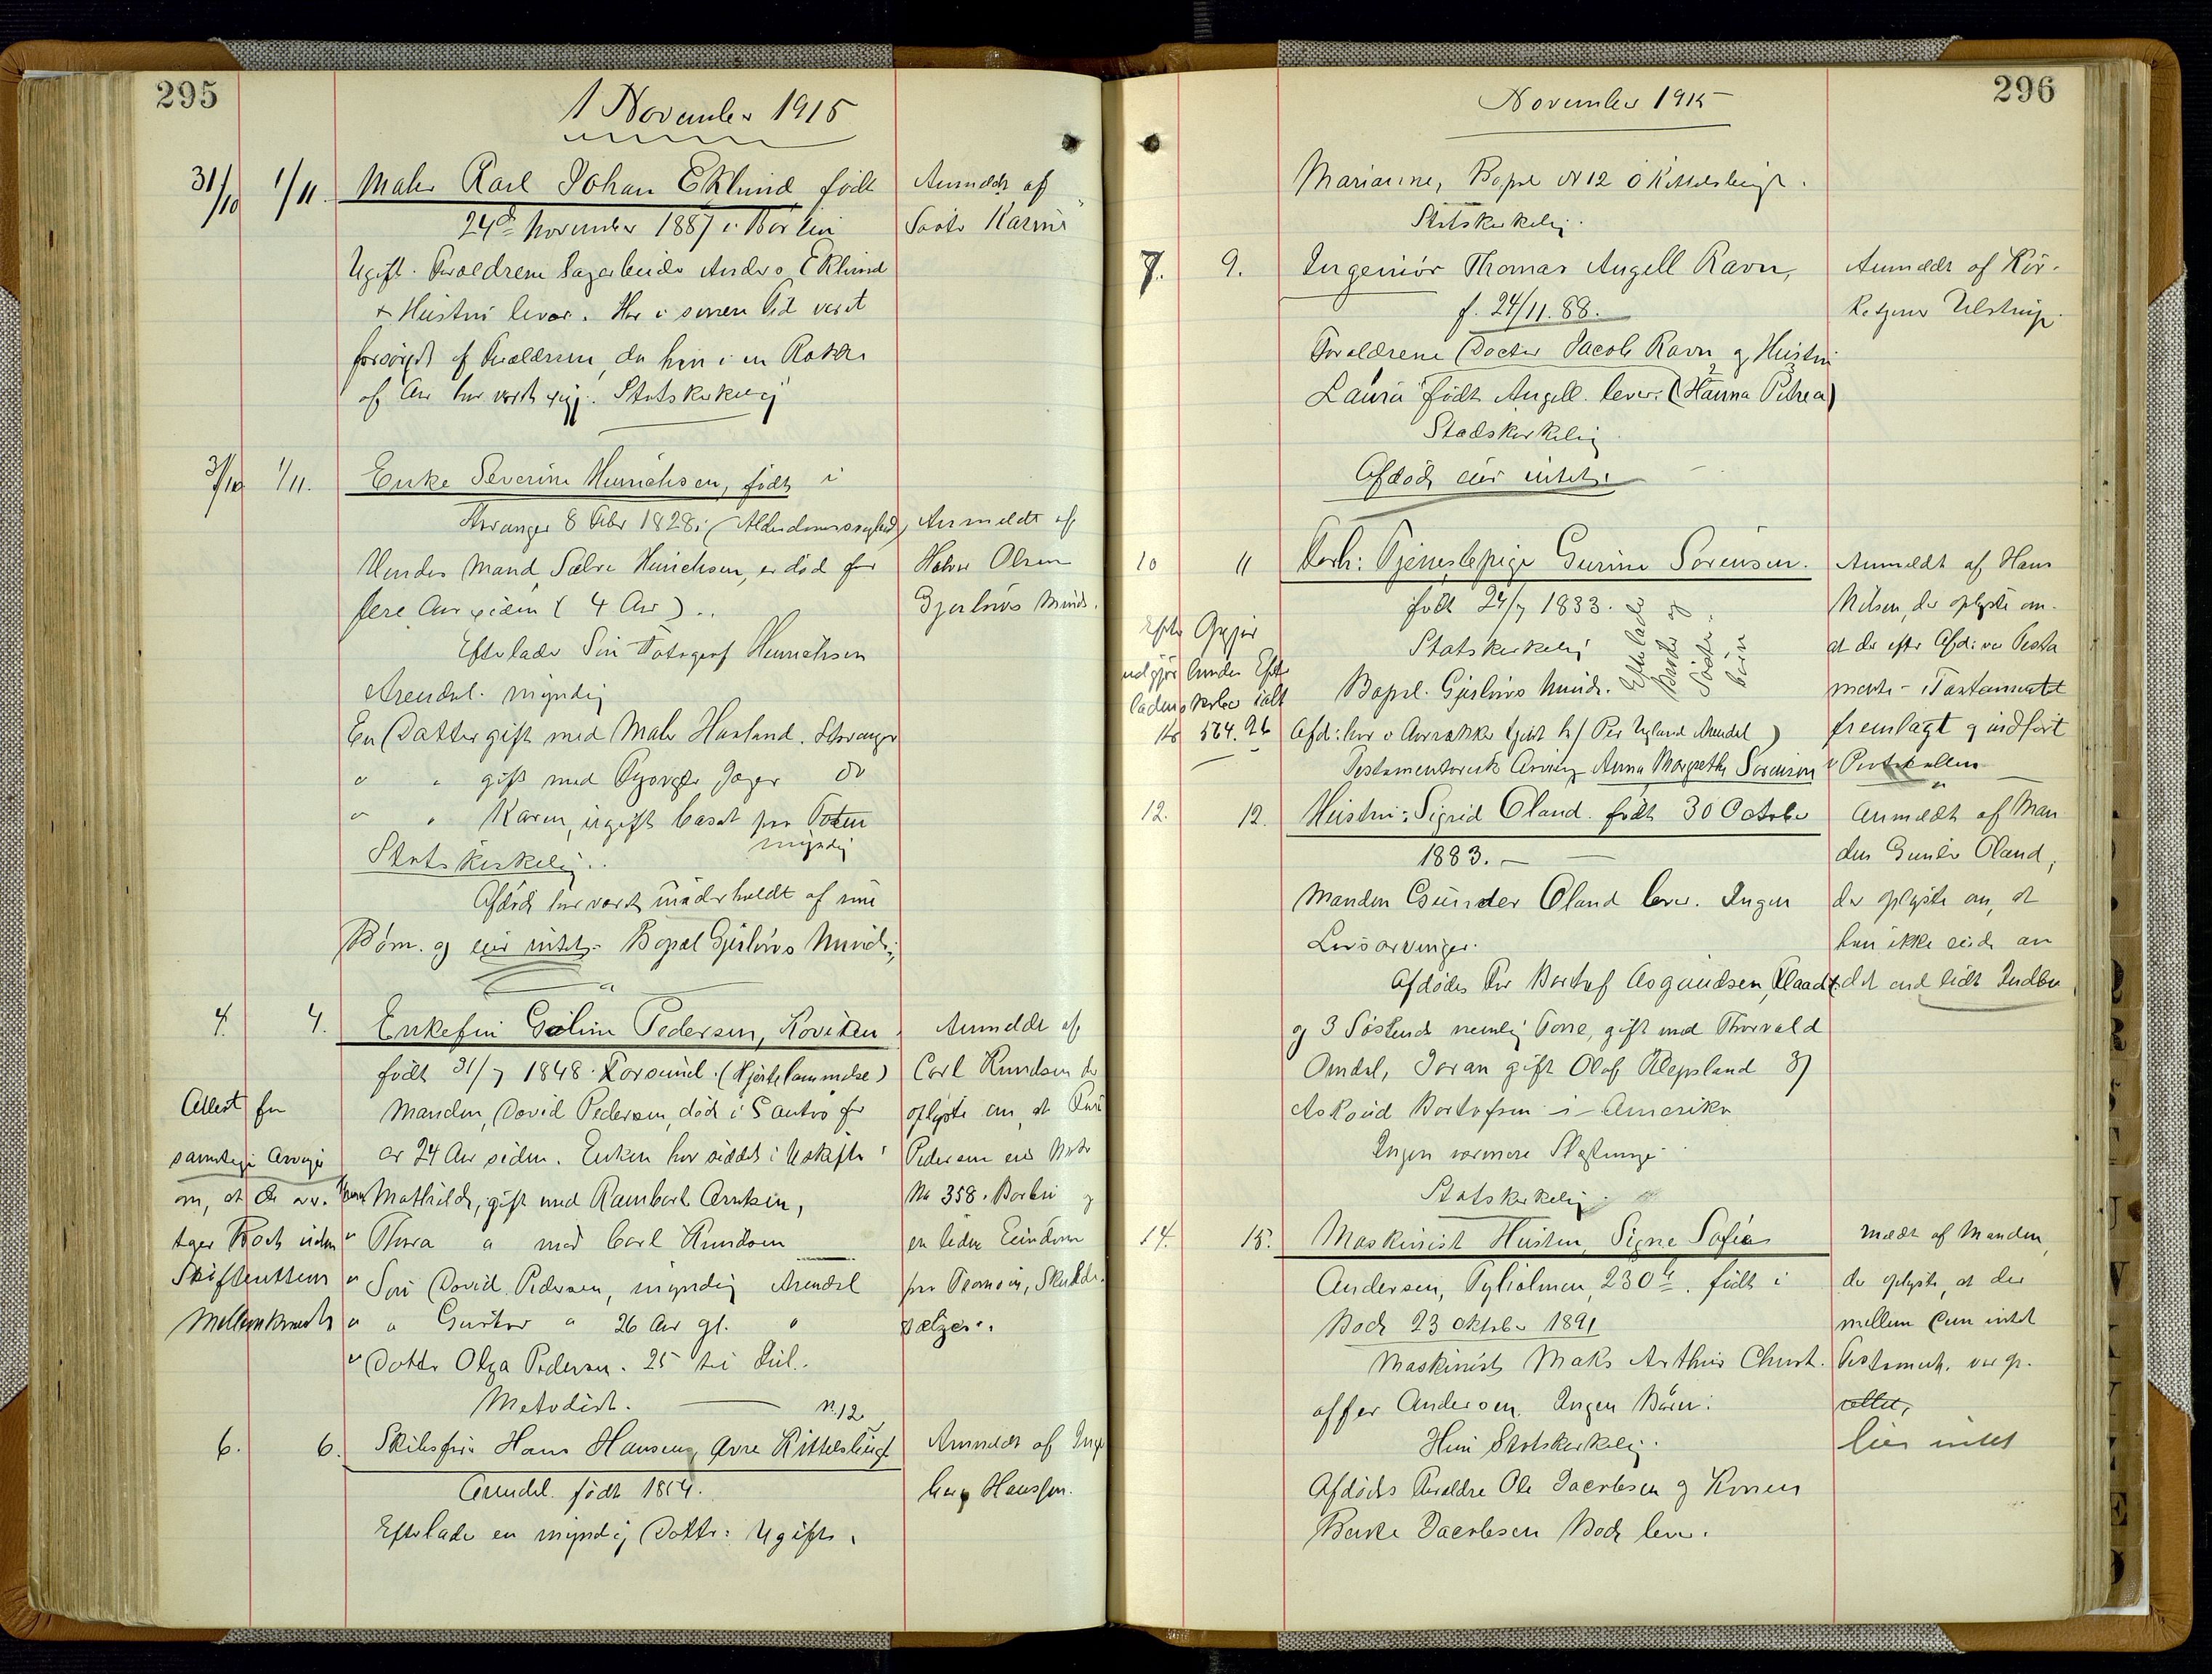 295
1 November 1915
31/10 1/11. Maler Karl Johan Eklund født
24de November 1887 i Bärlin
Ugift. Foreldrene Sagarbeider Anders Eklund
+ Hustru lever. Har i senere Tid veret
forsörget af Foreldrene, da han i en Rekke
af Aar har vert syg. Statskirkelig
Anmeldt af
Söster Karine
31/10 1/11. Enke Severine Henrichsen, født i
Stavanger 8 Febr 1828. (Alderdomssvaghed)
Hendes Mand Salve Henrichsen, er död for
flere Aar siden (4 Aar)..
Efterlader Sön Fotograf Henrichsen
Arendal. myndig
En Datter gift med Maler Hauland. Stavanger
" " gift med Jager do
" " Karen, ugift bosat paa Toten
myndig
Statskirkelig.
Afdöde har vert underholdt af sine
Börn. og eier intet. Bopæl Gjerlövs Minde.
Anmeldt af
Halvor Olsen
Gjerlövs Minde.
4. 4. Enkefru Goline Pedersen, Roviken
født 31/7 1848. (Hjertelammelse)
Manden, David Pedersen, död i Santos for
ca 24 Aar siden. Enken har siddet i Uskifte
Mathilde, gift med Ramborl Arntsen,
" Thora " med Carl Knudsen
" Sön David Pedersen, myndig Arendal
" " Gustav " 26 Aar gl. "
" Datter Olga Pedersen. 25 til Jul.
Metodist.
Attest for
samtlige Arvinger
om, at de over-
tager Boet uden
Skifterettens
Mellemkomst
Anmeldt af
Carl Knudsen der
oplyste om, at Fru
Pedersen eier Matr
No 358. Barbu og
en liden Eiendom
paa Tromöen, Skilsö.
sælges.
N. 12
6. 6. Skibsfører Hans Hansen, övre Kittelsbugt
Arendal født 1854.
Efterlader en myndig Datter: Ugift.
Anmeldt af Inge
borg Hanssen.
296
November 1915
Marianne, Bopæl N 12 Ö Kittelsbugt.
Statskirkelig.
7. 9. Ingeniör Thomas Angell Ravn,
f. 24/11. 88.
Foreldrene Doctor Jacob Ravn og Hustru
Laura født Angell. lever. (Hanna Petrea)
Statskirkelig
Afdöde eier intet.
Anmeldt af Kir-
ketjener Ulstrup.
10 11 Forh: Tjenestepige Gurine Sörensen.
født 24/7 1833.
Statskirkelig
Bopæl. Gjerlövs Minde.
Efterlader
Broder og
Söster-
börn
Testamentarisk Arving Anna Margrethe Sörensen
Efter Opgjör
udgjör hendes Efter
ladenskaber ialt
Kr 574.96
Anmeldt af Hans
Nilsen, der oplyste om
at der efter Afd. var Testa
ment - Testamentet
fremlagt og indfört
i Protokollen
12. 12. Hustru: Sigrid Oland. født 30 October
1883.
Manden Gunder Oland lever. Ingen
Livsarvinger.
Afdödes Far Bortuf Asgaudsen,
og 3 Söskende nemlig Tone, gift med Thorvald
Omdal, Joran gift Olaf Klepsland og
Askoud Bortufsen i Amerika
Ingen nærmere Slegtninge
Statskirkelig.
Anmeldt af Man
den Gunder Oland,
der oplyste om, at
hun ikke eiede an
det end lidt Indbo
14. 15. Maskinist Hustru Signe Sofie
Andersen, Tyholmen, 230b. født i
Bode 23 oktober 1891
Maskinist Maks Arthur Christ.
offer Andersen. Ingen Börn.
Hun Statskirkelig.
Afdödes Foreldre Ole Jacobsen og Konen
Berte Jacobsen Bode lever.
Meldt af Manden,
der oplyste, at der
mellem dem intet
Testament. var op-
rettet,
Eier intet